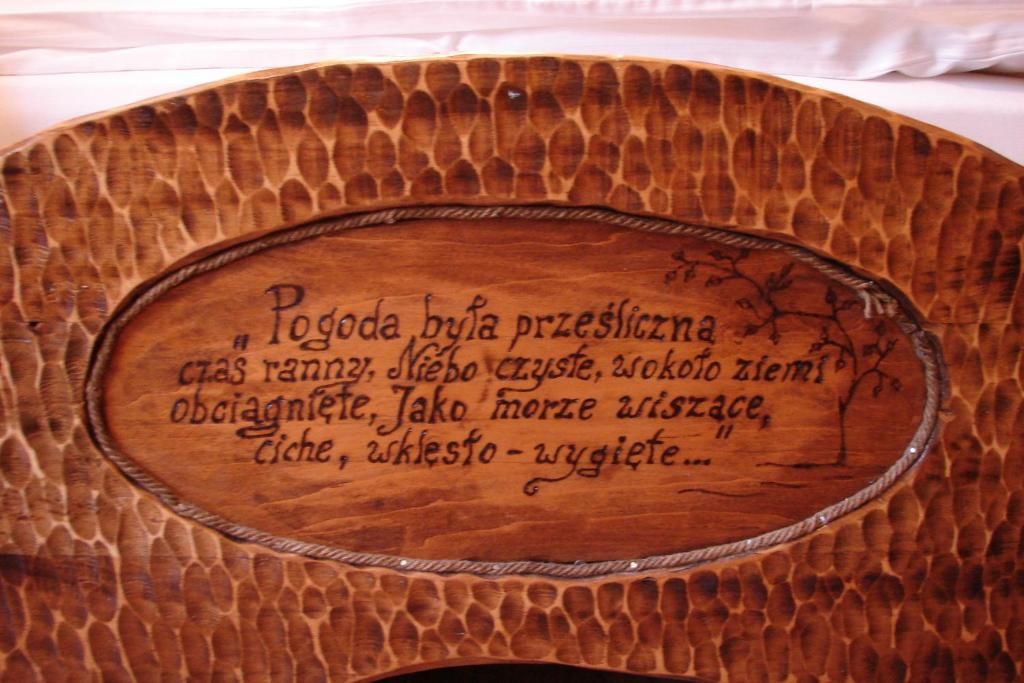 „Pogoda była prześliczna
czas ranny, Niebo czyste, wokoło ziemi
obciągnięte, Jako morze wiszące,
ciche, wklęsło - wygięte..."